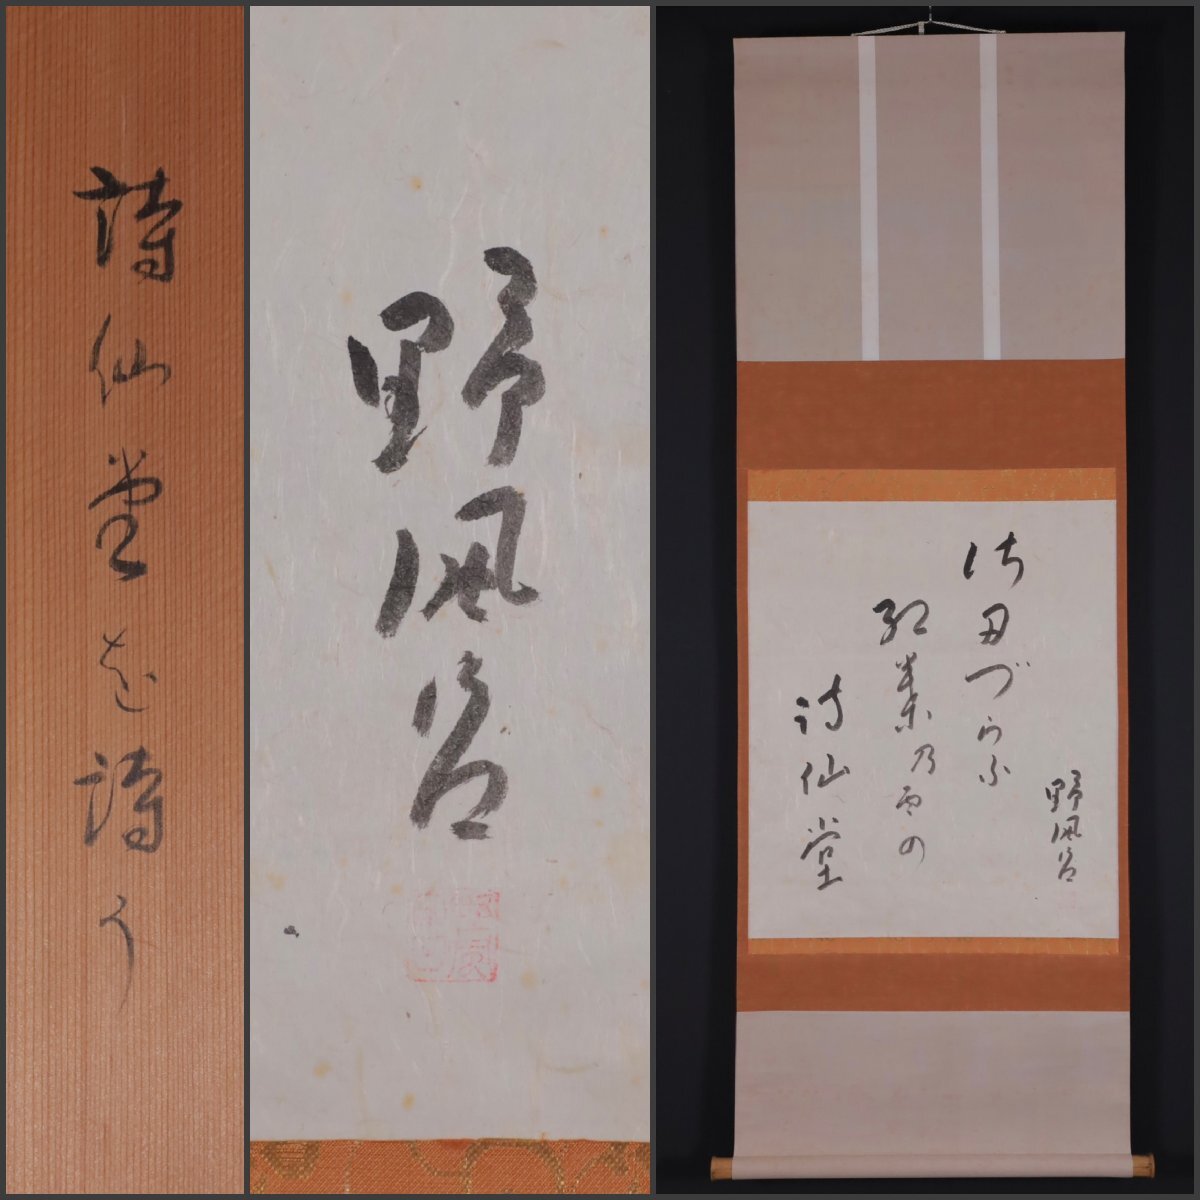 詩仙堂を詩う
野風呂
佐丹づらふ
紅葉乃雨の
詩仙堂
野風呂